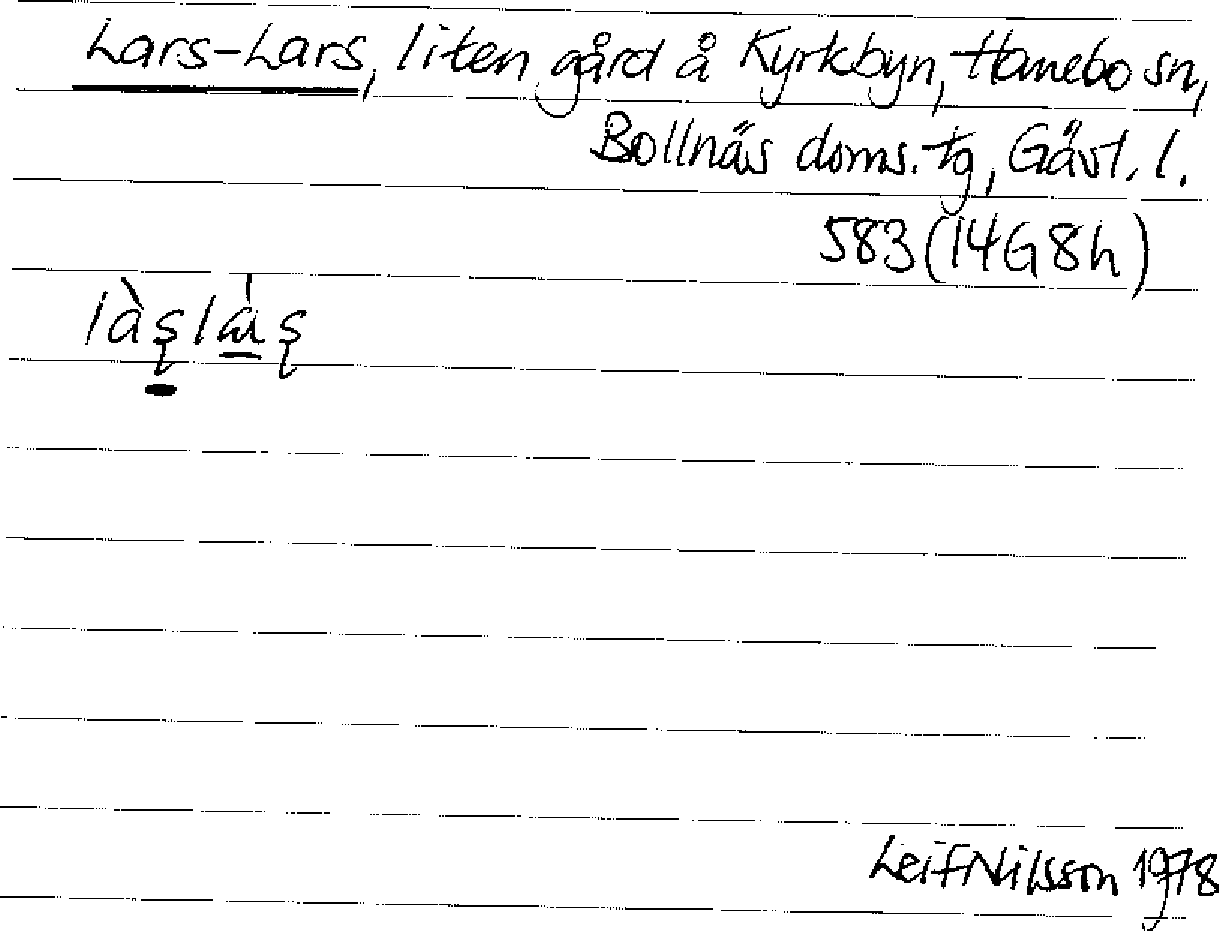 Lars-Lars, liten gård å Kyrkbyn, Hanebo sn,
Bollnäs doms. tg, Gävl. l.
583 (14G8h)
làʂláʂ
Leif Nilsson 1978